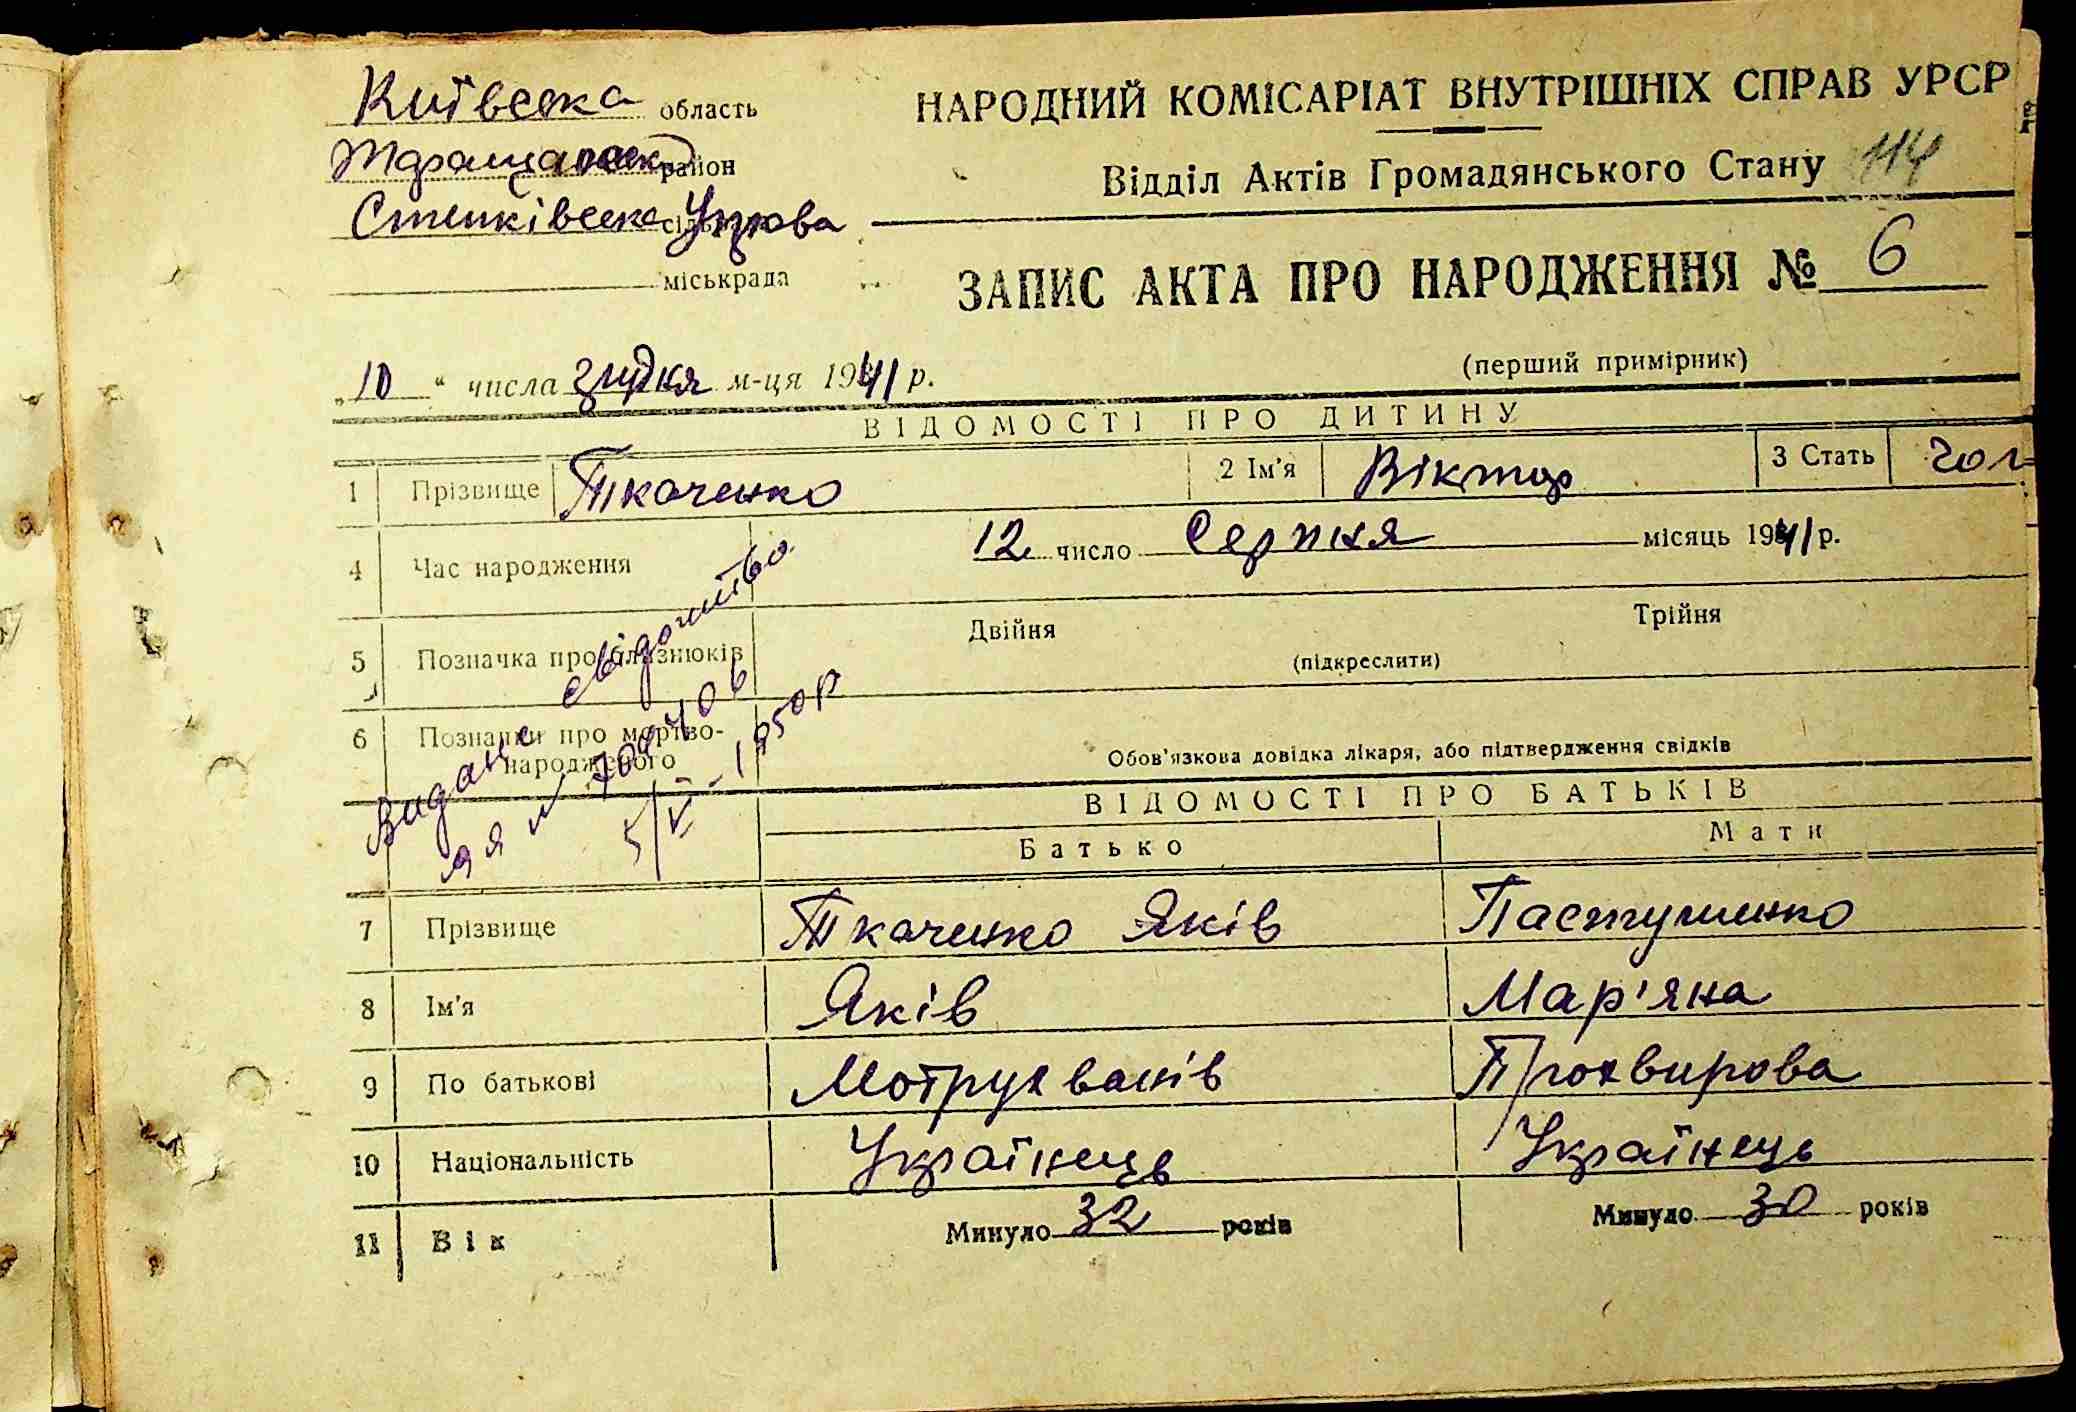 Київська область
НАРОДНИЙ КОМІСАРІАТ ВНУТРІШНІХ СПРАВ УРСР
район
Відділ Актів Громадянського Стану 114
Управа
міськрада
ЗАПИС АКТА ПРО НАРОДЖЕННЯ № 6
(перший примірник)
„10“ числа грудня м-ця 1941 р.
ВІДОМОСТІ ПРО ДИТИНУ
1 Прізвище Ткаченко 2 Ім'я Віктор 3 Стать чол
4 Час народження 12 число Серпня місяць 1941 р.
5 Позначка про близнюків Двійня Трійня
(підкреслити)
6 Позначки про мертво-
народженого
Обов'язкова довідка лікаря, або підтвердження свідків
Видане свідоцтво
5/V-1950 р
ВІДОМОСТІ ПРО БАТЬКІВ
Батько Мати
7 Прізвище Ткаченко Яків Пастушенко
8 Ім'я Яків Мар'яна
9 По батькові
10 Національність Українець Українець
11 Вік Минуло 32 років Минуло 30 років